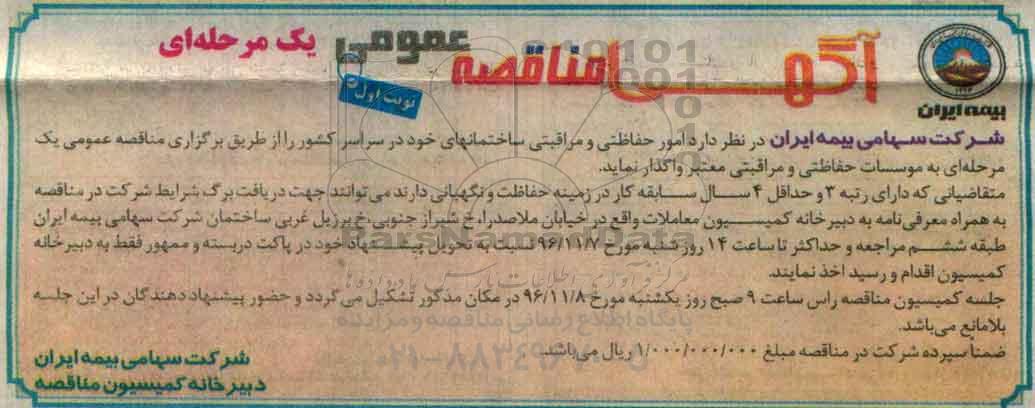 آگهی مناقصه عمومی یک مرحله‌ای
نوبت اول
بیمه ایران
شرکت سهامی بیمه ایران در نظر دارد امور حفاظتی و مراقبتی ساختمانهای خود در سراسر کشور را از طریق برگزاری مناقصه عمومی یک
مرحله‌ای به موسسات حفاظتی و مراقبتی معتبر واگذار نماید.
متقاضیانی که دارای رتبه ۳ و حداقل ۴ سال سابقه کار در زمینه حفاظت و نگهبانی دارند می‌توانند جهت دریافت برگ شرایط شرکت در مناقصه
به همراه معرفی‌نامه به دبیرخانه کمیسیون معاملات واقع در خیابان ملاصدرا، خ شیراز جنوبی، خ برزیل غربی ساختمان شرکت سهامی بیمه ایران
طبقه ششم مراجعه و حداکثر تا ساعت ۱۴ روز شنبه مورخ ۹۶/۱۱/۷ نسبت به تحویل پیشنهاد خود در پاکت دربسته و ممهور فقط به دبیرخانه
کمیسیون اقدام و رسید اخذ نمایند.
جلسه کمیسیون مناقصه راس ساعت ۹ صبح روز یکشنبه مورخ ۹۶/۱۱/۸ در مکان مذکور تشکیل می‌گردد و حضور پیشنهاد دهندگان در این جلسه
بلامانع می‌باشد.
ضمناً سپرده شرکت در مناقصه مبلغ ۱/۰۰۰/۰۰۰/۰۰۰ ریال می‌باشد.
شرکت سهامی بیمه ایران
دبیرخانه کمیسیون مناقصه
ParsNamadData
پایگاه اطلاع رسانی مناقصه و مزایده